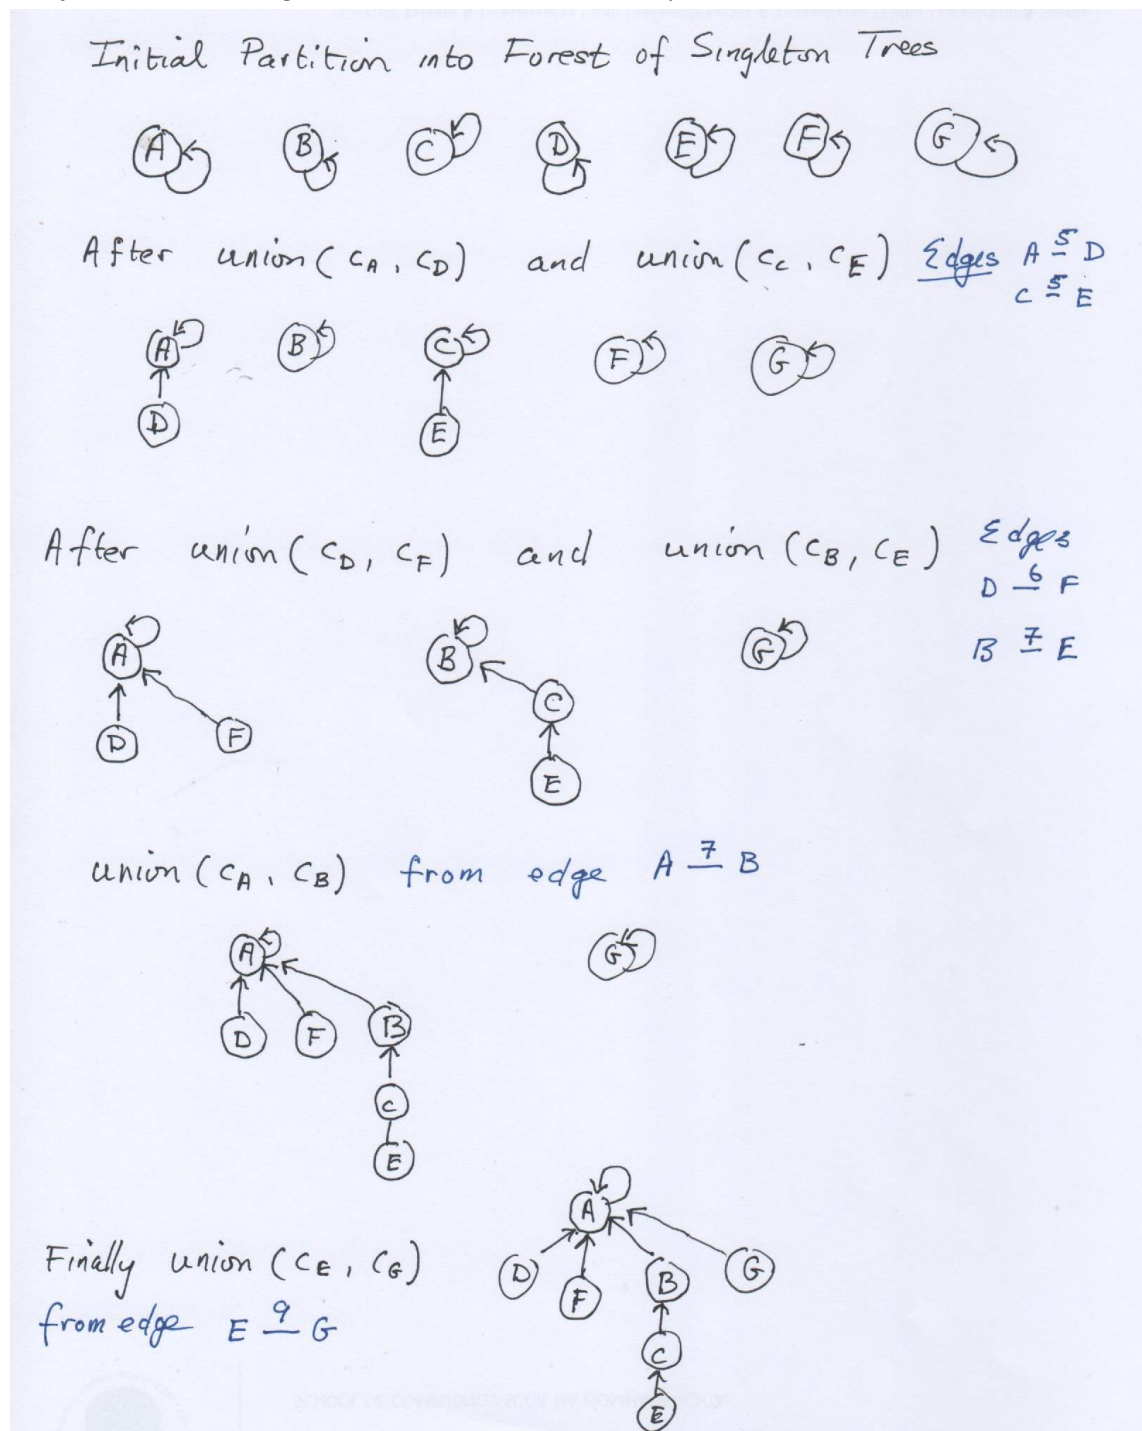 Initial Partition into Forest of Singleton Trees
A B C D E F G
After union(CA, CD) and union(CC, CE) Edges A 5 D
C 5 E
A B C F G
D E
After union(CD, CF) and union(CB, CE) Edges
D 6 F
B 7 E
A B G
C
D F
E
union(CA, CB) from edge A 7 B
A G
D F B
C
E
A
Finally union(CE, CG)
D F B G
from edge E 9 G
C
E